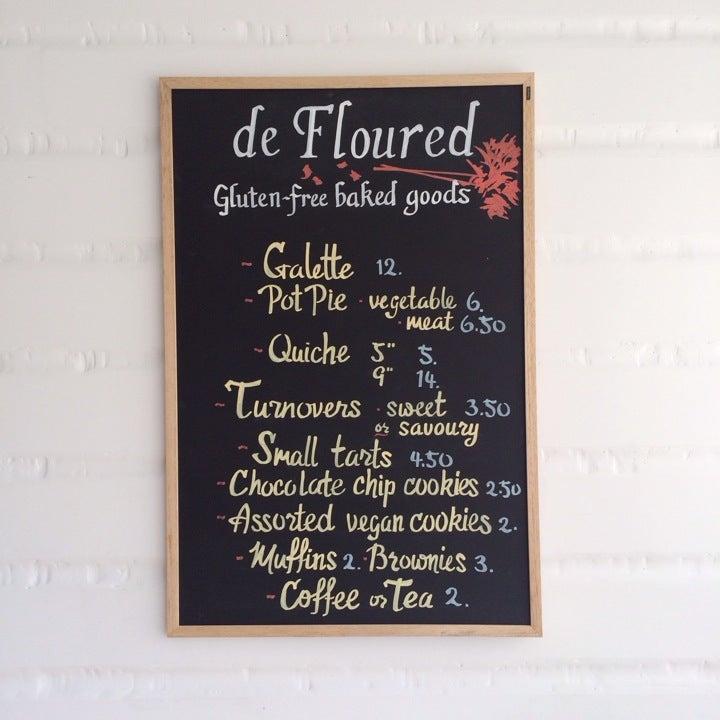 de Floured
Gluten-free baked goods
- Galette 12.
- Pot Pie · vegetable 6.
· meat 6.50
- Quiche 5" 5.
9" 14.
- Turnovers · sweet 3.50
or savoury
- Small tarts 4.50
- Chocolate chip cookies 2.50
- Assorted vegan cookies 2.
- Muffins 2. · Brownies 3.
- Coffee or Tea 2.